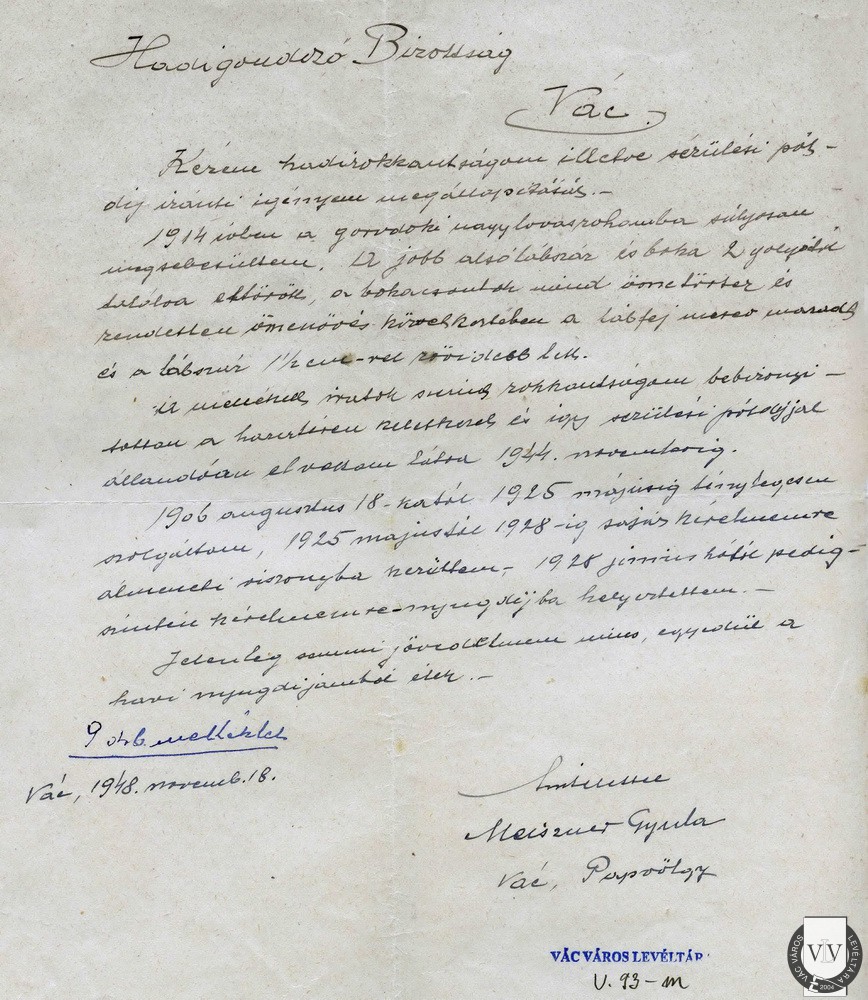 Hadigondozó Bizottság
Vác.
Kérem hadirokkantságom illetve sérülési pót-
díj iránti igényem megállapítását.-
1914 évben a gorodoki nagy lovasrohamba súlyosan
megsebesültem. A jobb alsólábszár és boka 2 golyótól
találva eltörött, a bokacsontok mind össetörtek és
rendetlen össenövés következtében a lábfej merev maradt
és a lábszár 1½ cm-rel rövidebb lett.
A mellékelt iratok szerint rokkantságom bebizonyí-
tottan a harctéren keletkezett és így sérülési pótdíjjal
állandóan el voltam látva 1944. novemberig.
1906 augusztus 18-kától 1925 májusig ténylegesen
szolgáltam, 1925 majustól 1928-ig saját kérelmemre
átmeneti viszonyba kerültem,- 1928 június hótól pedig-
szintén kérelmemre-nyugdíjba helyeztettem.-
Jelenleg semmi jövedelmem nincs, egyedül a
havi nyugdíjamból élek.-
9 drb. melléklet
Vác, 1948. novemb. 18.
Meiszner Gyula
Vác, Papvölgy
VÁC VÁROS LEVÉLTÁR
V. 93-m
VÁC VÁROS LEVÉLTÁRA
VLV
2004